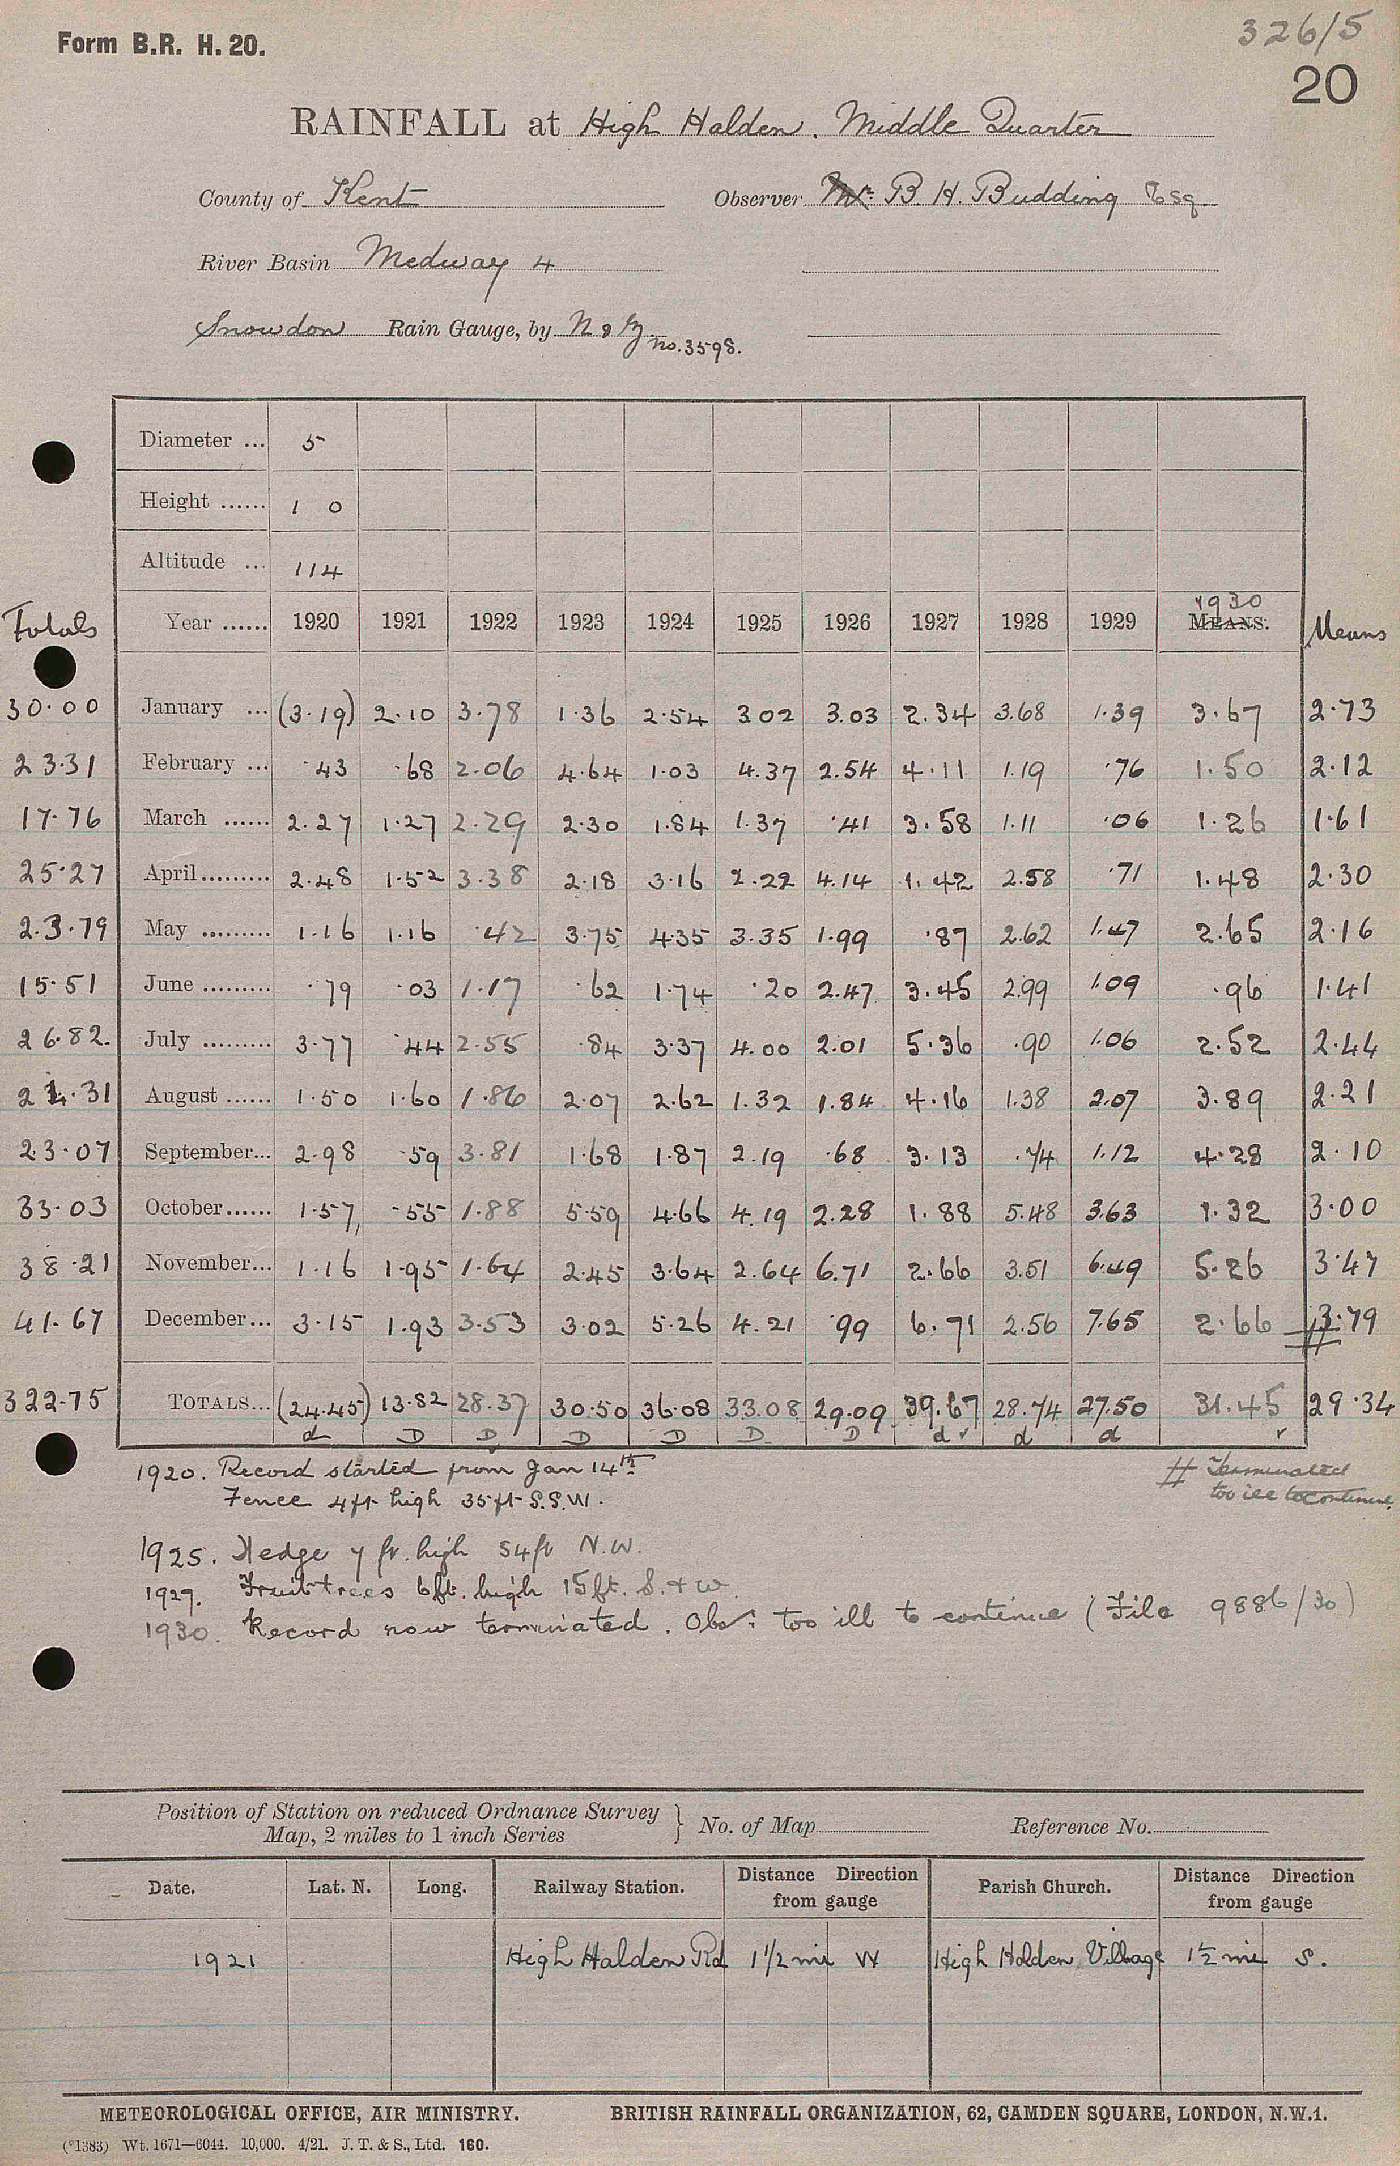 326/5
Form B.R. H. 20.
20
RAINFALL at High Halden. Middle Quarter
County of Kent Observer Mr. B. H. Budding Esq
River Basin Medway 4
Snowdon Rain Gauge, by N & Z no. 3598.
Diameter ... 5
Height ...... 1 0
Altitude ... 114
1930
Totals Year ...... 1920 1921 1922 1923 1924 1925 1926 1927 1928 1929 MEANS. Means
30.00 January ... (3.19) 2.10 3.78 1.36 2.54 3.02 3.03 2.34 3.68 1.39 3.67 2.73
23.31 February ... .43 .68 2.06 4.64 1.03 4.37 2.54 4.11 1.19 .76 1.50 2.12
17.76 March ...... 2.27 1.27 2.29 2.30 1.84 1.37 .41 3.58 1.11 .06 1.26 1.61
25.27 April ......... 2.48 1.52 3.38 2.18 3.16 2.22 4.14 1.42 2.58 .71 1.48 2.30
23.79 May ......... 1.16 1.16 .42 3.75 4.35 3.35 1.99 .87 2.62 1.47 2.65 2.16
15.51 June ......... .79 .03 1.17 .62 1.74 .20 2.47 3.45 2.99 1.09 .96 1.41
26.82. July ......... 3.77 .44 2.55 .84 3.37 4.00 2.01 5.36 .90 1.06 2.52 2.44
24.31 August ...... 1.50 1.60 1.86 2.07 2.62 1.32 1.84 4.16 1.38 2.07 3.89 2.21
23.07 September... 2.98 .59 3.81 1.68 1.87 2.19 .68 3.13 .74 1.12 4.28 2.10
33.03 October...... 1.57 .55 1.88 5.59 4.66 4.19 2.28 1.88 5.48 3.63 1.32 3.00
38.21 November... 1.16 1.95 1.64 2.45 3.64 2.64 6.71 2.66 3.51 6.49 5.26 3.47
41.67 December... 3.15 1.93 3.53 3.02 5.26 4.21 .99 6.71 2.56 7.65 2.66 # 3.79
322.75 TOTALS... (24.45) 13.82 28.37 30.50 36.08 33.08 29.09 39.67 28.74 27.50 31.45 29.34
d D D D D D D d ✓ d d ✓
1920. Record started from Jan 14th
Fence 4ft high 35ft S.S.W.
# Terminated
too ill to continue.
1925. Hedge 7 ft. high 54ft N.W.
1927. Fruit trees 6ft. high 15ft. S. & W.
1930. Record now terminated. Obsr. too ill to continue (File 9886/30)
Position of Station on reduced Ordnance Survey
Map, 2 miles to 1 inch Series } No. of Map Reference No.
Date. Lat. N. Long. Railway Station. Distance Direction from gauge Parish Church. Distance Direction from gauge
1921 High Halden Rd 1½ mi W High Halden Village 1½ mi S.
METEOROLOGICAL OFFICE, AIR MINISTRY. BRITISH RAINFALL ORGANIZATION, 62, CAMDEN SQUARE, LONDON, N.W.1.
(*1383) Wt. 1671—6044. 10,000. 4/21. J. T. & S., Ltd. 160.